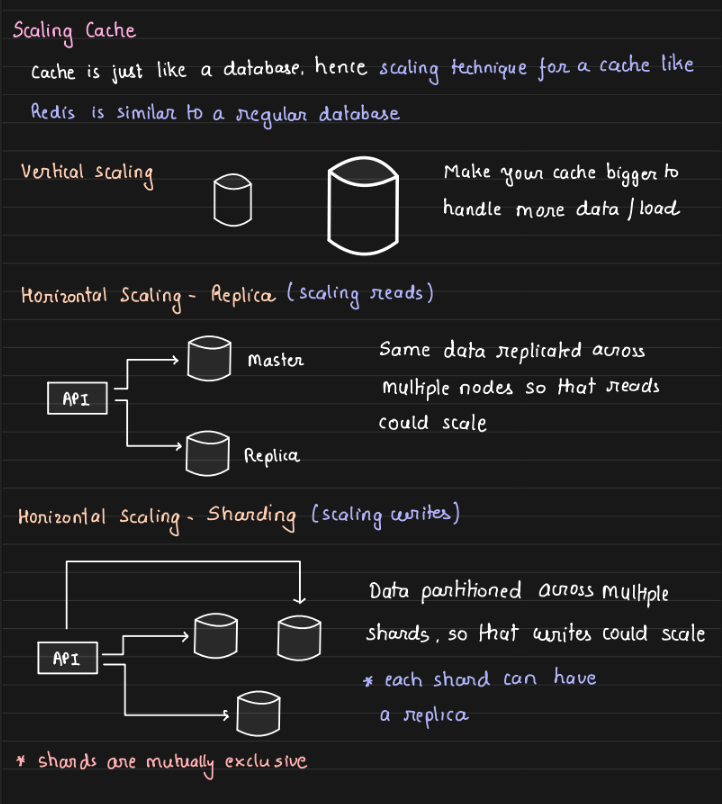 Scaling Cache
Cache is just like a database, hence scaling technique for a cache like
Redis is similar to a regular database
Vertical scaling
Make your cache bigger to
handle more data / load
Horizontal Scaling - Replica (scaling reads)
API
Master
Replica
Same data replicated across
multiple nodes so that reads
could scale
Horizontal Scaling - Sharding (scaling writes)
API
Data partitioned across multiple
shards, so that writes could scale
* each shard can have
a replica
* shards are mutually exclusive